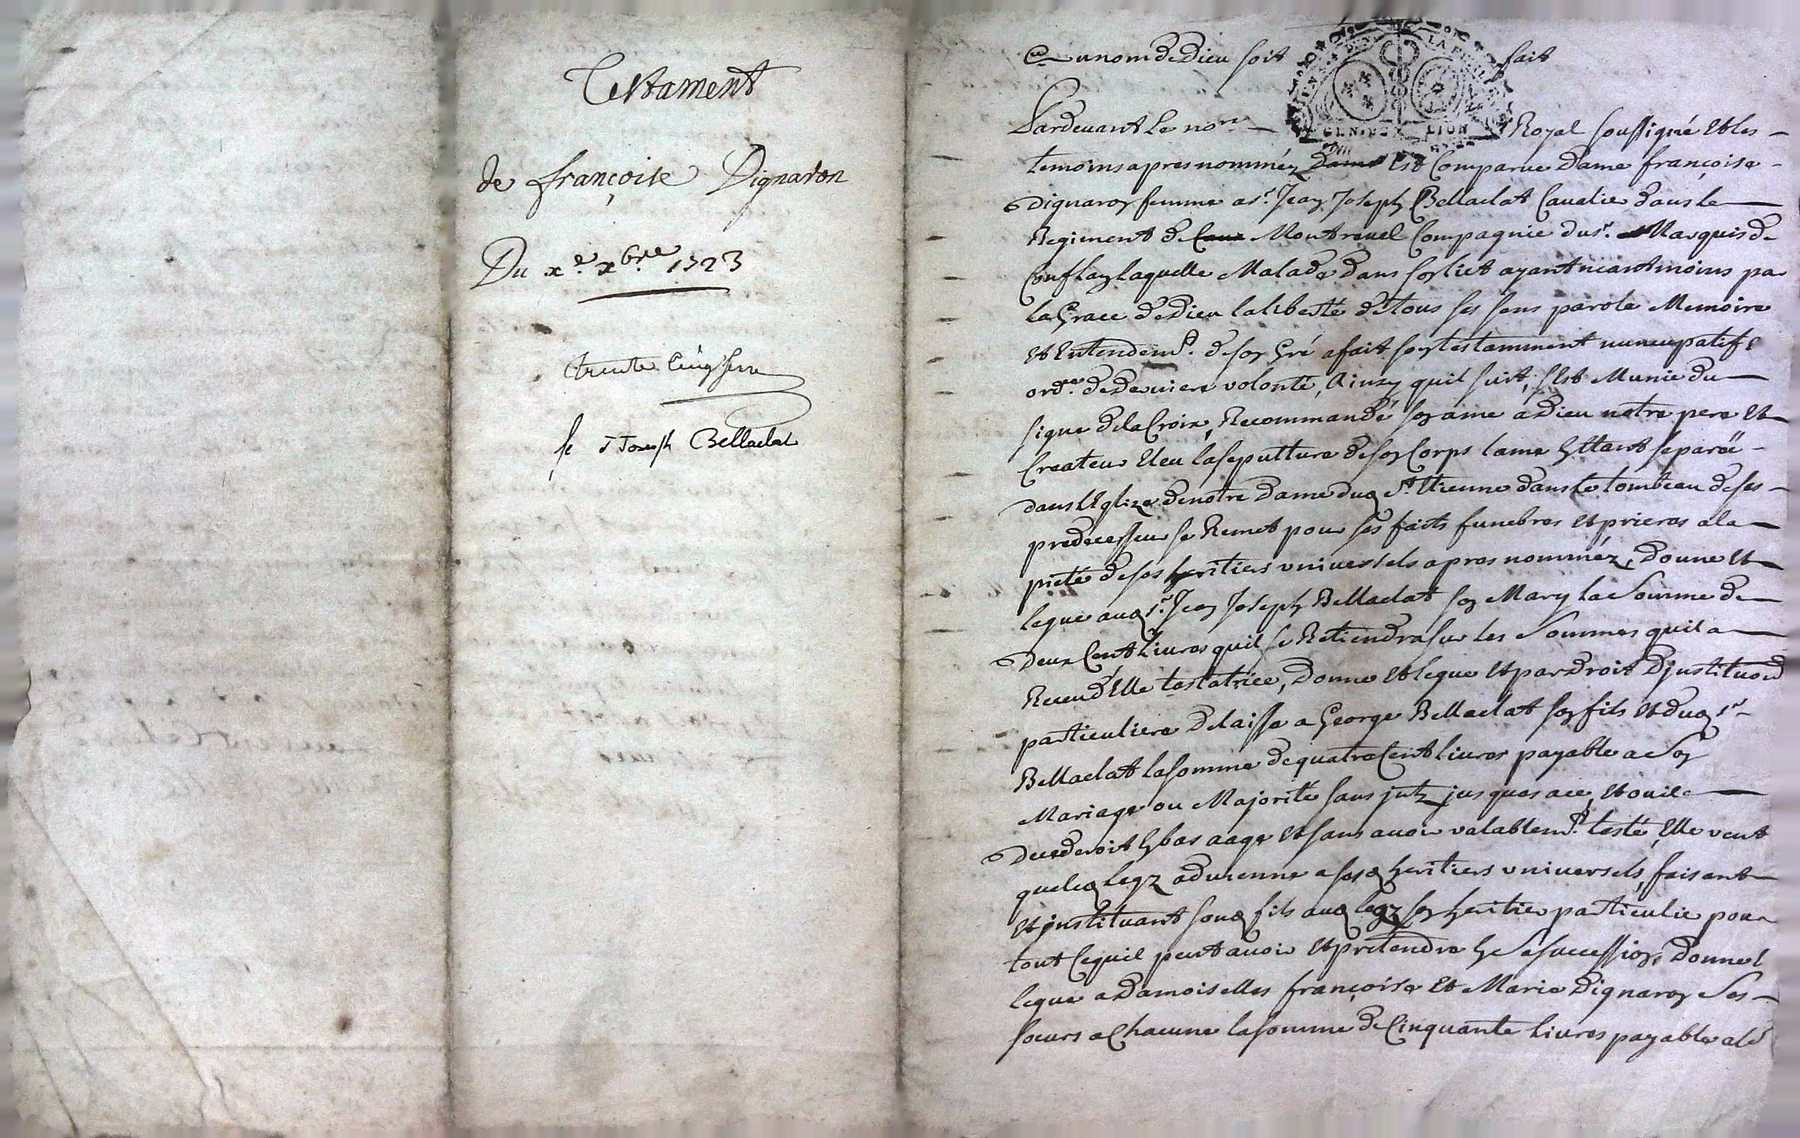 Testament
de françoise Dignaron
Du x.e xbre 1723
trente cinq
J Joseph Bellaclat
Au nom de Dieu soit fait
LION
Pardevant le no.re Royal soussigné et les
temoins apres nomméz Est Comparue Dame françoise
Dignaron femme a s.r Jean Joseph Bellaclat Cavalie dans le
Regiment de Montrevel Compagnie du s.r Marquis de
Conflan laquelle Malade dans son lict ayant neantmoins par
la Grace de Dieu la liberté de tous ses sens parole Memoire
et Entendem.t de son Gré a fait son testamment nuncupatif &
ord.re de derniere volonté, Ainsy quil suit, s'est Munie du
signe de la Croix, Recommandé son ame a Dieu notre pere Et
Createur Eleu la sepulture de son Corps lame Estant separéé
dans l'Eglize de notre Dame dud St. Etienne dans le tombeau de ses
predecesseu se Remet pour ses faits funebres et prieres a la
pieté de ses heritiers universels apres nomméz, Donne Et
legue aud s.r Jean Joseph Bellaclat son Mary la Somme de
Deux Cent Livres quil se Retiendra sur les Sommes quil a
Receu d'Elle tastatrice, Donne Et legue et par droit D'institu.on
particuliere delaisse a George Bellaclat son fils et dud s.r
Bellaclat la somme de quatre Cent livres payable a son
Mariage ou Majorité sans jusques a ce, Et ou il
decederoit En bas aage Et sans avoir valablem.t testé, Elle veut
que led legz advienne a sesd heritiers universels, faisant
Et jnstituant sond fils aud legz son heritier particulie pour
tout ce quil peut avoir et pretendre En Sa succession, Donne &
legue a Damoiselles françoise Et Marie Dignaron Ses
soeurs a Chacune la somme de Cinquante livres payables